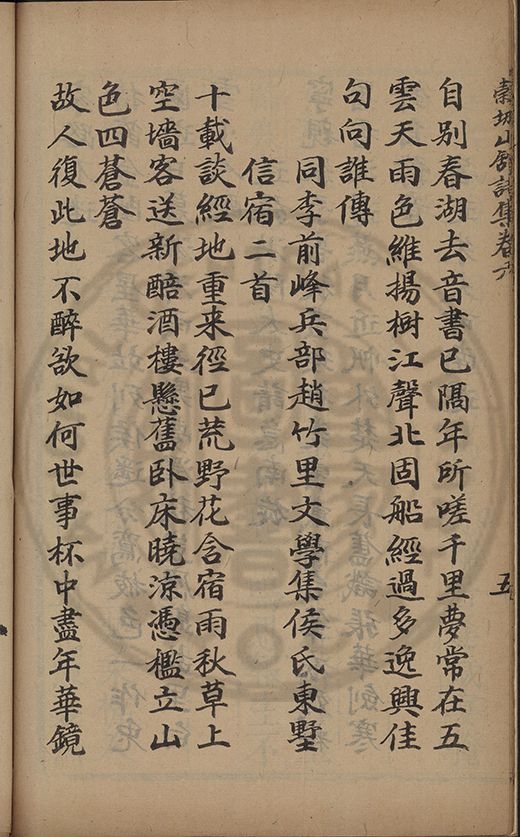 索切山館詩集卷六
五
自別春湖去音書已隔年所嗟千里夢常在五
雲天雨色維揚樹江聲北固船經過多逸興佳
句向誰傳
同李前峰兵部趙竹里文學集侯氏東墅
信宿二首
十載談經地重来徑已荒野花含宿雨秋草上
空墻客送新醅酒樓懸舊卧床曉涼憑檻立山
色四蒼蒼
故人復此地不醉欲如何世事杯中盡年華鏡